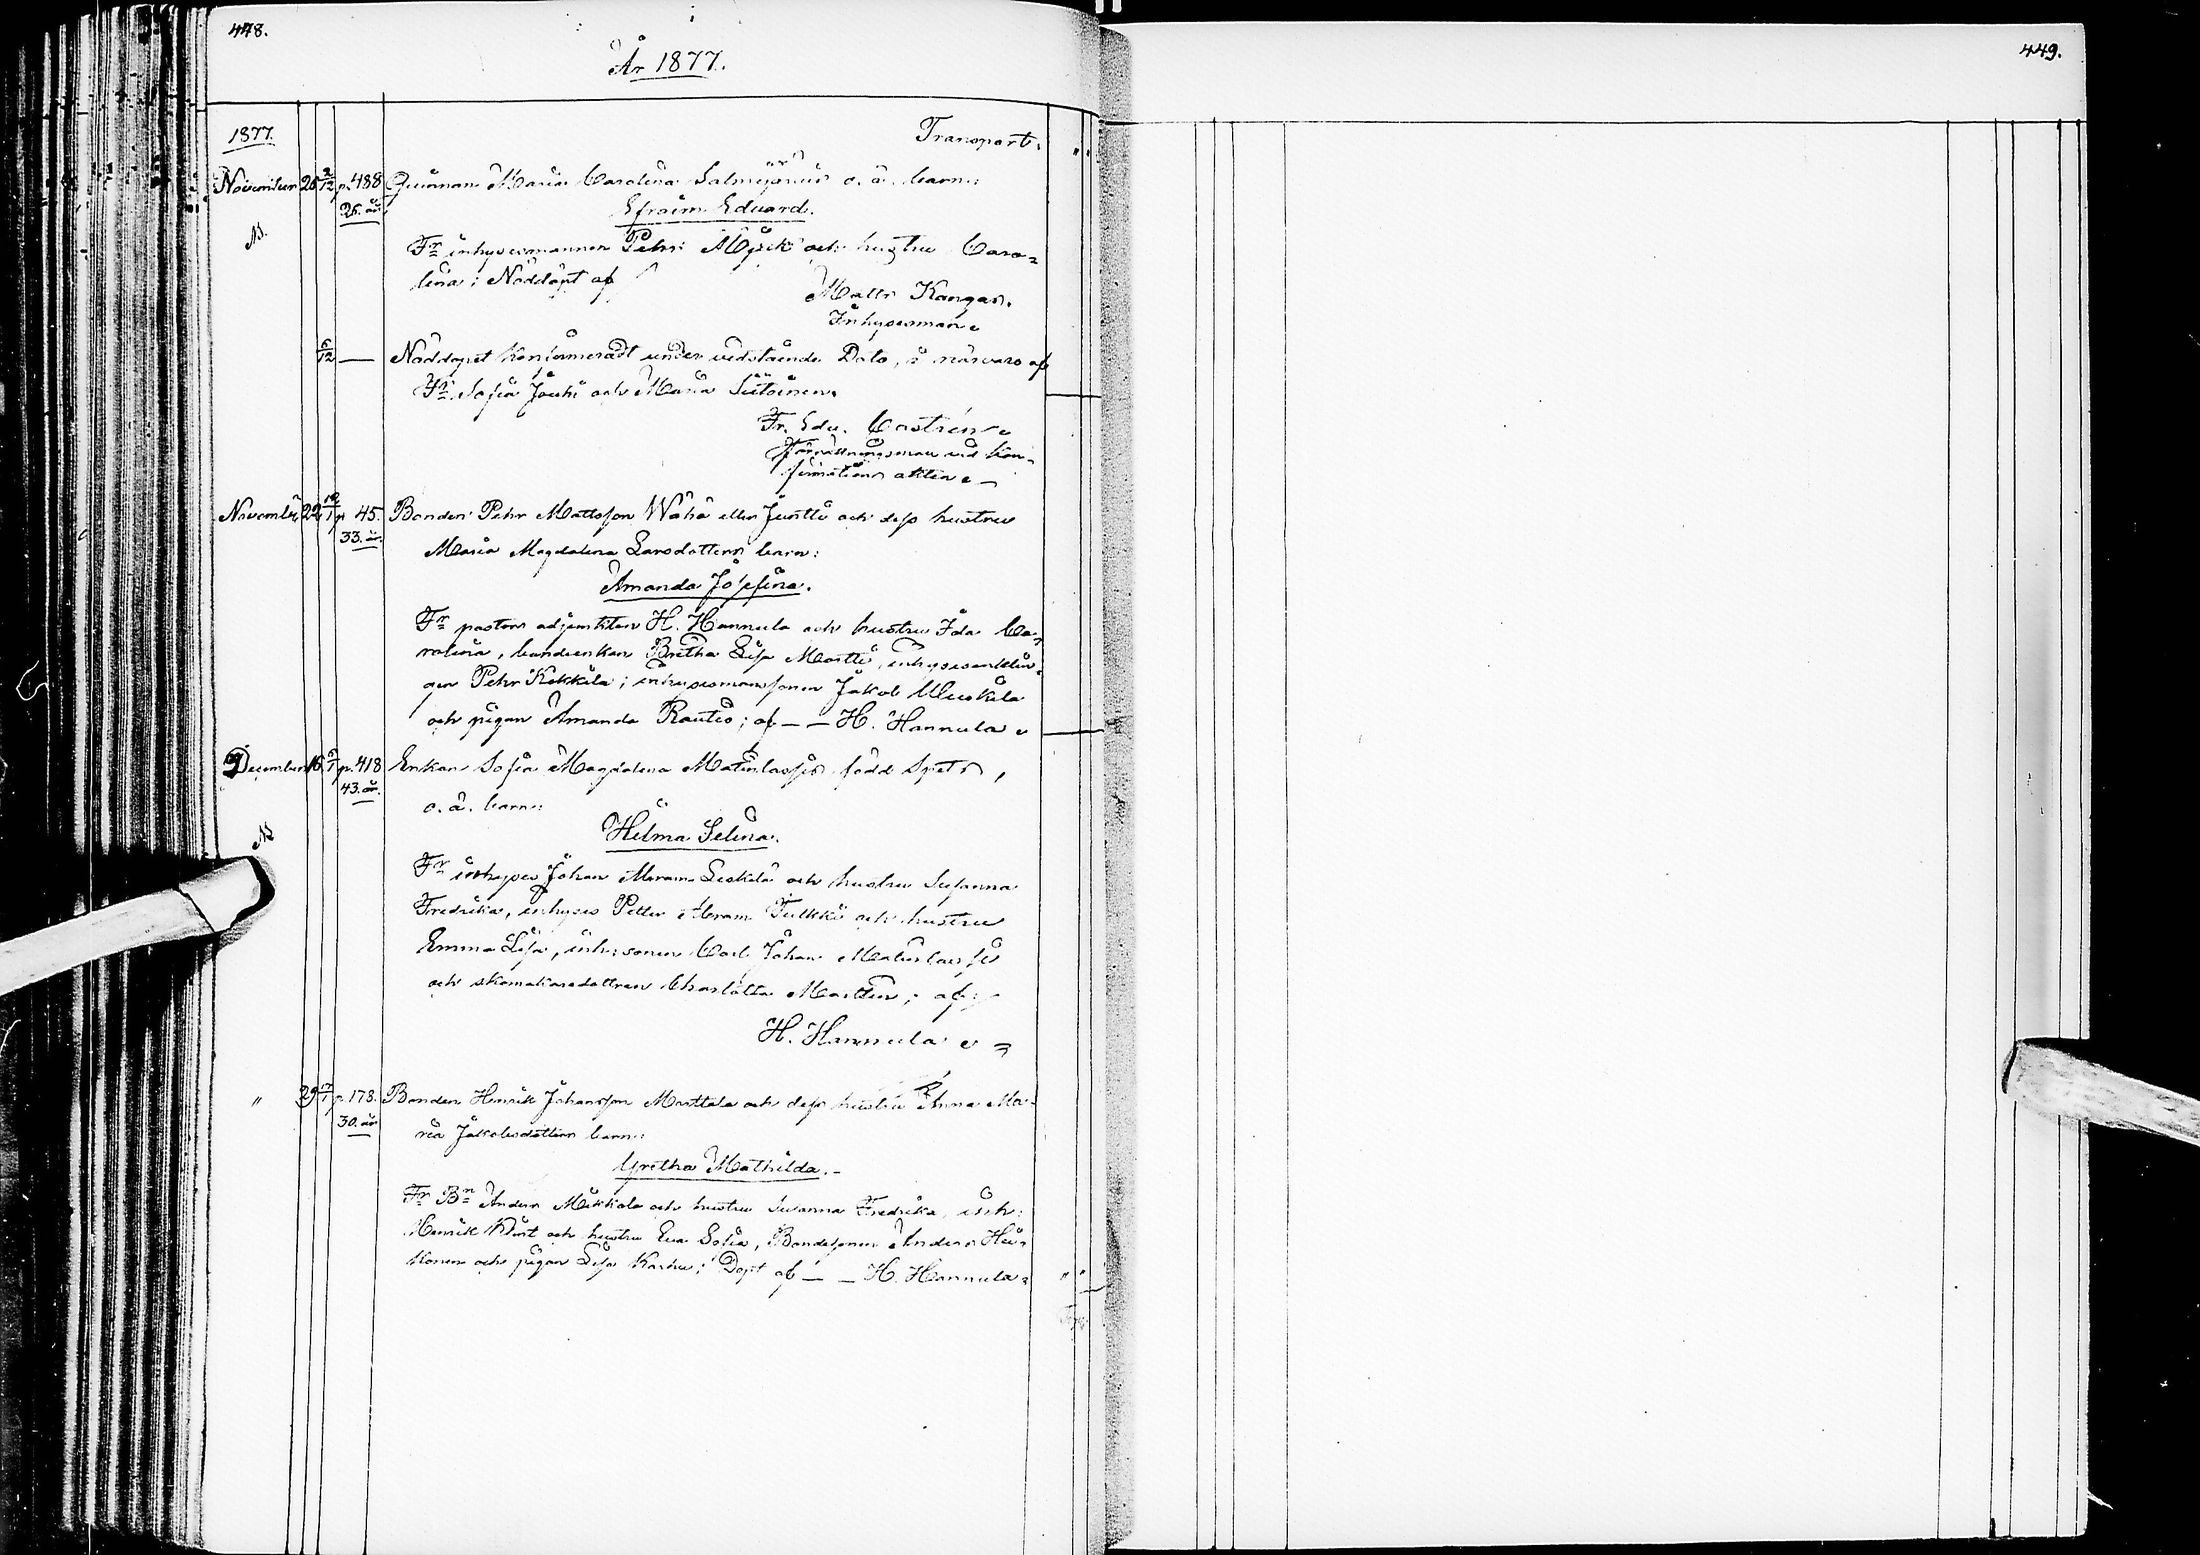 448.
År 1877.
449.
1877.
Transport.
November 25 2/12 p. 488 Qvinnan Maria Carolina o. ä. barn:
26. år. Efraim Eduard.
NB.
Fr inhysesmannen Pehr och hustru Caro=
lina; Nöddöpt af
Matts Kangas.
Inhysesman.
5/12 — Nöddopet konfirmeradt under vidstående Dato, i närvaro af
Fr Sofia Jouhi och Maria
Fr. Edv. Castrén
Förrättningsman vid kon=
firmations akten.
November 22 p. 45. Bonden Pehr Mattsson Wähä eller Juntti och dess hustru
33. år. Maria Magdalena Larsdotters barn:
Amanda Josefina.
Fr pastors adjunkten H. Hannula och hustru Ida Ca=
rolina, bondenkan Bretha Lisa Martti, inhysesenklin=
gen Pehr Kokkila; inhysesmanssonen Jakob
och pigan Amanda Rautio; af — — H. Hannula
December 16 6/1 p. 418 Enkan Sofia Magdalena Matinlassis född Spets,
43. år. o. ä. barn:
Hilma Selina.
NB
Fr inhyses Johan Abram och hustru Susanna
Fredrika, inhyses Petter Abram Tulkki och hustru
Emma Lisa, inh: sonen Carl Johan Matinlassi
och skomakaredottren Charlotta af
H. Hannula
" 29 17/1 p. 178. Bonden Henrik Johansson Marttala och dess hustru Anna Ma=
30. år ria Jakobsdotters barn:
Gretha Mathilda.
Fr Bn Anders Mikkola och hustru Susanna Fredrika, inh:
Henrik och hustru Eva Sofia, Bondesonen Anders
och pigan Lisa Karhu; Döpt af — — H. Hannula